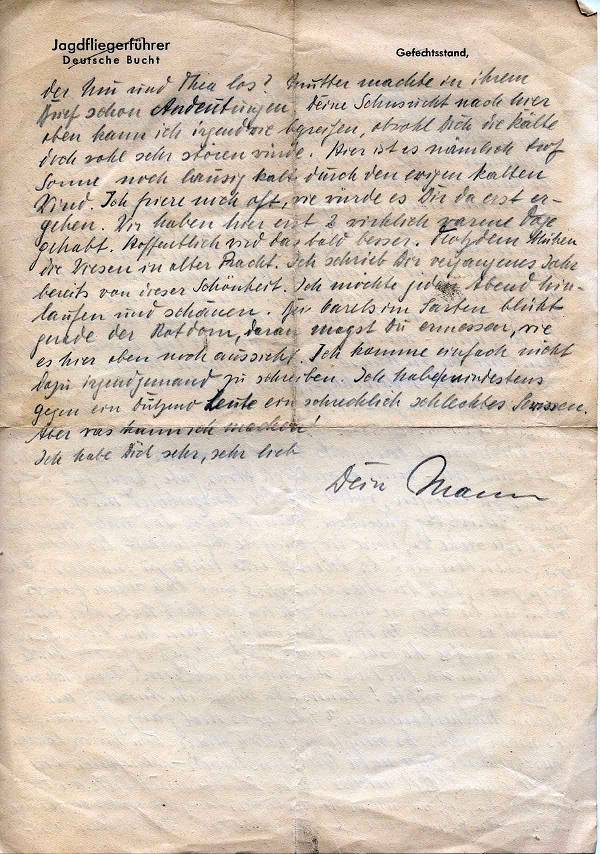 Jagdfliegerführer
Deutsche Bucht
Gefechtsstand,
der und Thea los? Mutter machte in ihrem
Brief schon Andeutungen. Deine Sehnsucht nach hier
oben kann ich irgendwie begreifen, obwohl Dich die Kälte
doch wohl sehr stören würde. Hier ist es nämlich trotz
Sonne noch lausig kalt durch den ewigen kalten
Wind. Ich friere mich oft, wie würde es Dir da erst er-
gehen. Wir haben hier erst 2 wirklich warme Tage
gehabt. Hoffentlich wird das bald besser. Trotzdem blühen
die Wiesen in alter Pracht. Ich schrieb Dir vergangenes Jahr
bereits von dieser Schönheit. Ich möchte jeden Abend hin-
laufen und schauen. Bei im Garten blüht
gerade der Rotdorn, daran magst Du ermessen, wie
es hier oben noch aussieht. Ich komme einfach nicht
dazu irgendjemand zu schreiben. Ich habe mindestens
gegen ein Dutzend Leute ein schrecklich schlechtes Gewissen.
Aber was kann ich machen!
Ich habe Dich sehr, sehr lieb
Dein Mann